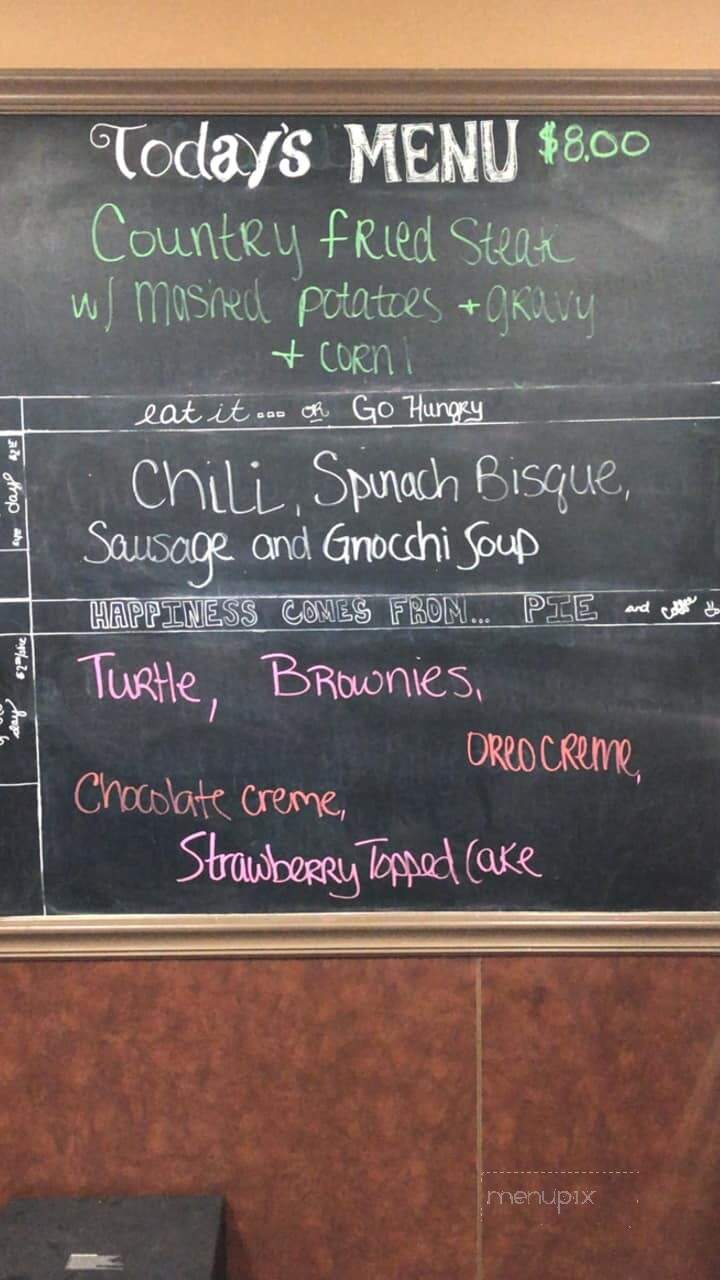 Today's MENU $8.00
Country fried Steak
w/ mashed potatoes + gravy
+ corn!
eat it... or Go Hungry
Chili, Spinach Bisque,
Sausage and Gnocchi Soup
HAPPINESS COMES FROM... PIE and coffee
Turtle, Brownies,
Oreo Creme,
Chocolate creme,
Strawberry Topped Cake
day
day
menupix